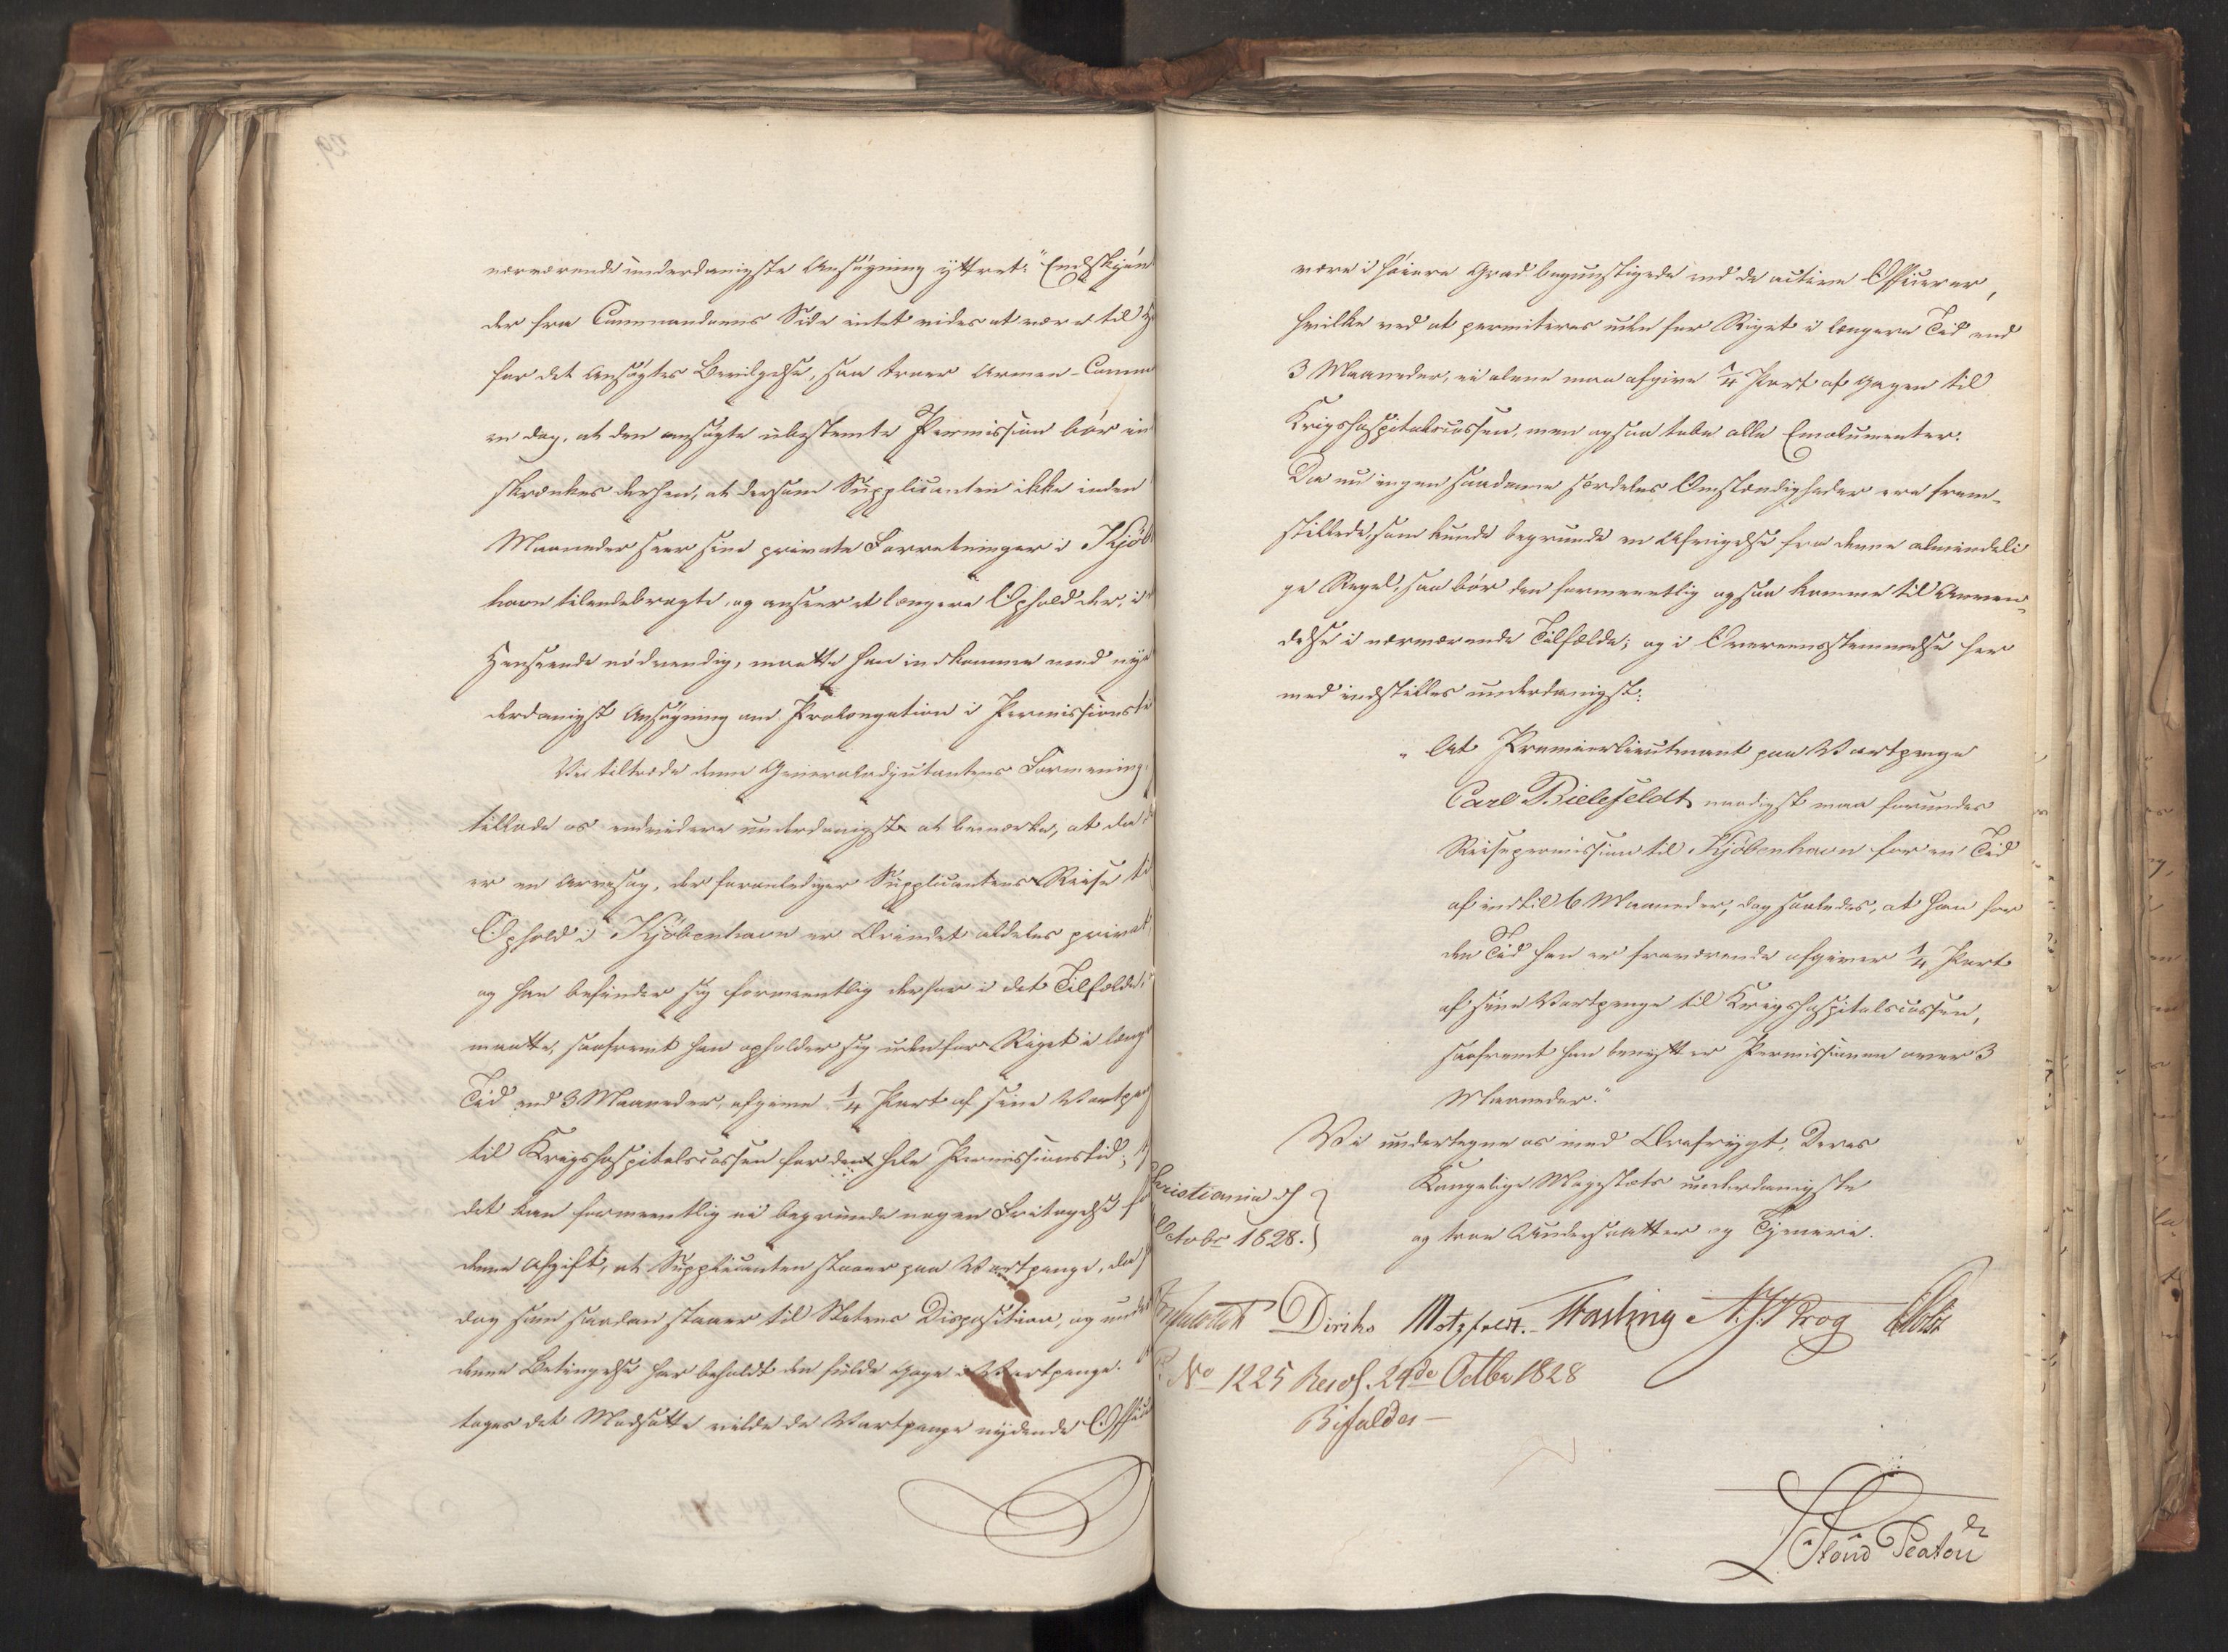 nærværende underdanigste Ansøgning yttret: "Endskjøn
der fra Commandoens Side intet vides at være til H
for det Ansøgtes Bevilgelse, saa troer Armee-Comm
en dog, at den ansøgte ubestemte Permission bør in
skrænkes derhen, at dersom Supplicanten ikke inden
Maaneder seer sine private Forretninger i Kjøb
havn tilendebragte, og anseer et længere Ophold der, i
Henseende nødvendig, maatte han indkomme med nye
derdanigst Ansøgning om Prolongation i Permissionsti
Vi tiltræde denne Generaladjutantens Formening,
tillade os endvidere underdanigst at bemærke, at da d
er en Arvesag, der foranlediger Supplicantens Reise ti
Ophold i Kjøbenhavn er Ærindet aldeles privat,
og han befinder sig formeentlig derfor i det Tilfælde,
maatte, saafremt han opholder sig udenfor Riget i læng
Tid end 3 Maaneder, afgive 1/4 Part af sine Vartpe
til Krigshospitalscassen for den hele Permissionstid;
det kan formeentlig ei begrunde nogen Fritagelse fo
denne Afgift, at Supplicanten staaer paa Vartpenge, da
dog som saadan staaer til Statens Disposition, og unde
denne Betingelse har beholdt den fulde Gage i Vartpenge.
toges det Modsatte vilde de Vartpenge nydende Offici
være i høiere Grad begunstigede end de active Officierer,
hvilke ved at permitteres uden for Riget i længere Tid end
3 Maaneder, ei alene maa afgive 1/4 Part af Gagen til
Krigshospitalscassen, men ogsaa tabe alle Emolumenter.
Da nu ingen saadanne særdeles Omstændigheder ere frem-
stillede, som kunde begrunde en Afvigelse fra denne almindeli
ge Regel, saa bør den formeentlig ogsaa komme til Anven-
delse i nærværende Tilfælde; og i Overeensstemmelse her
med indstilles underdanigst:
"At Premierlieutenant paa Vartpenge
Carl Bielefeldt naadigst maa forundes
Reisepermission til Kjöbenhavn for en Tid
af indtil 6 Maaneder, dog saaledes, at han for
den Tid han er fraværende afgiver 1/4 Part
af sine Vartpenge til Krigshospitalscassen,
saafremt han benytter Permissionen over 3
Maaneder."
Vi undertegne os med Ærefrygt, Deres
Kongelige Majestæts underdanigste
og troe Undersaatter og Tjenere.
Christiania d
Octobr 1828.
Diriks Motzfeldt. Fasting N. J. Krog Holst
No 1225 Resol. 24de Octbr 1828
Bifaldes —